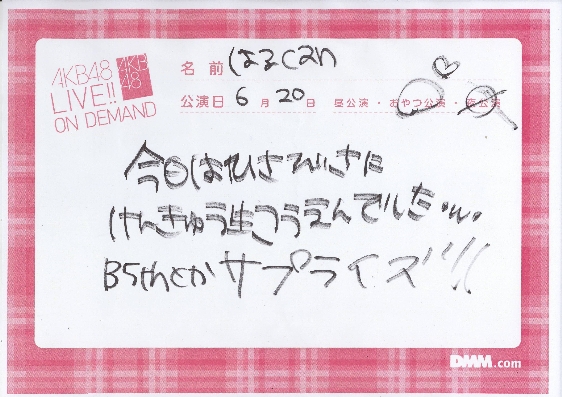 AKB48
LIVE!!
ON DEMAND
AKB
48
名前 はるごん
公演日 6月20日 昼公演・おやつ公演・夜公演
今日はひさびさに
けんきゅう生こうえんでした・ω・
B5thとか サプライズ!!!
DMM.com